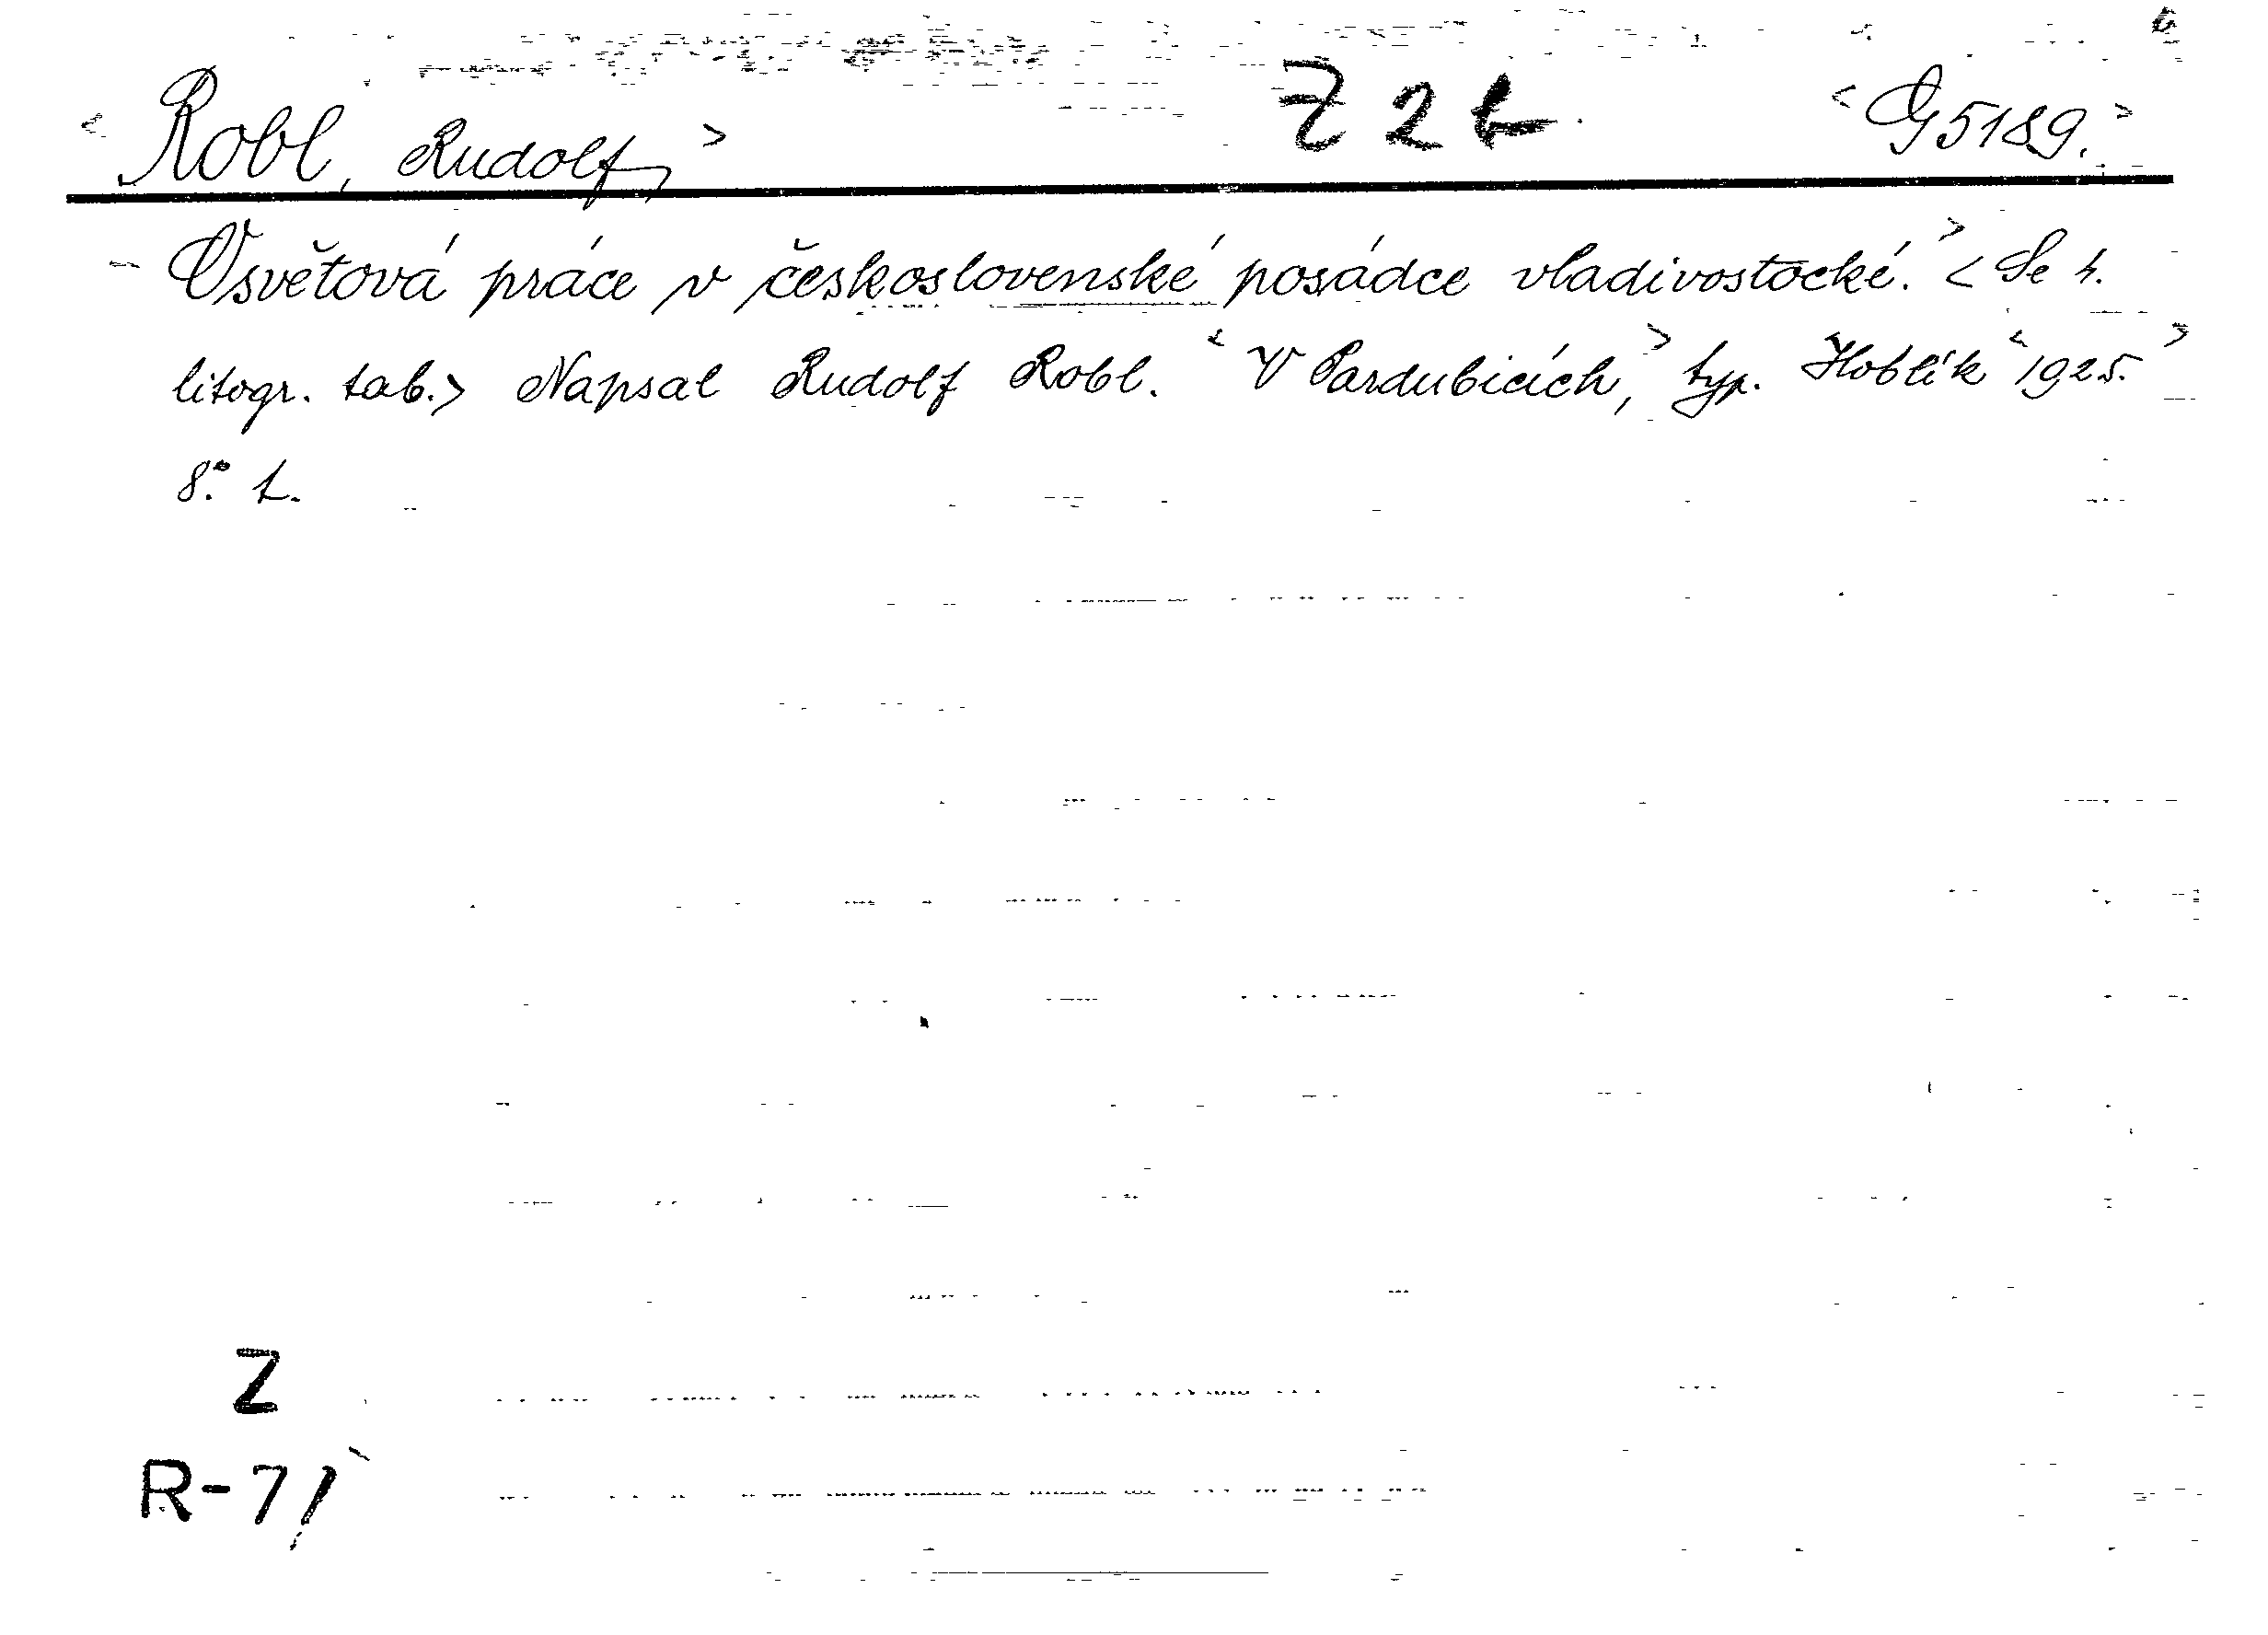 < Robl, Rudolf, > Z 2 t < G 5189. >
Osvětová práce v československé posádce vladivostocké. > < Se 4.
litogr. tab. > Napsal Rudolf Robl. < V Pardubicích, > typ. Hoblík < 1925. >
8.° L.
Z
R-71